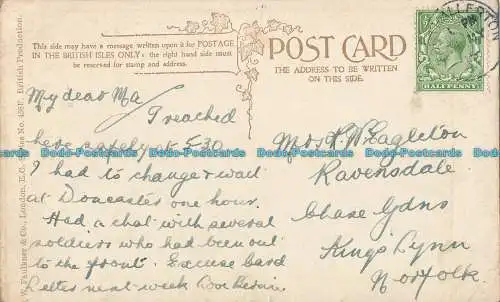 This side may have a message written upon it for POSTAGE
IN THE BRITISH ISLES ONLY: the right hand side must
be reserved for stamp and address.
POST CARD
THE ADDRESS TO BE WRITTEN
ON THIS SIDE.
LLERTON
HALFPENNY
My dear Ma
I reached
here safely at 5.30
I had to change & wait
at Doncaster one hour.
Had a chat with several
soldiers who had been out
to the front. Excuse card
letter next week
Mrs R W Eagleton
Ravensdale
Chase Gdns
King's Lynn
Norfolk
W. Faulkner & Co., London, E.C. British Production.
Todo-Postcards Todo-Postcards Todo-Postcards Todo-Postcards